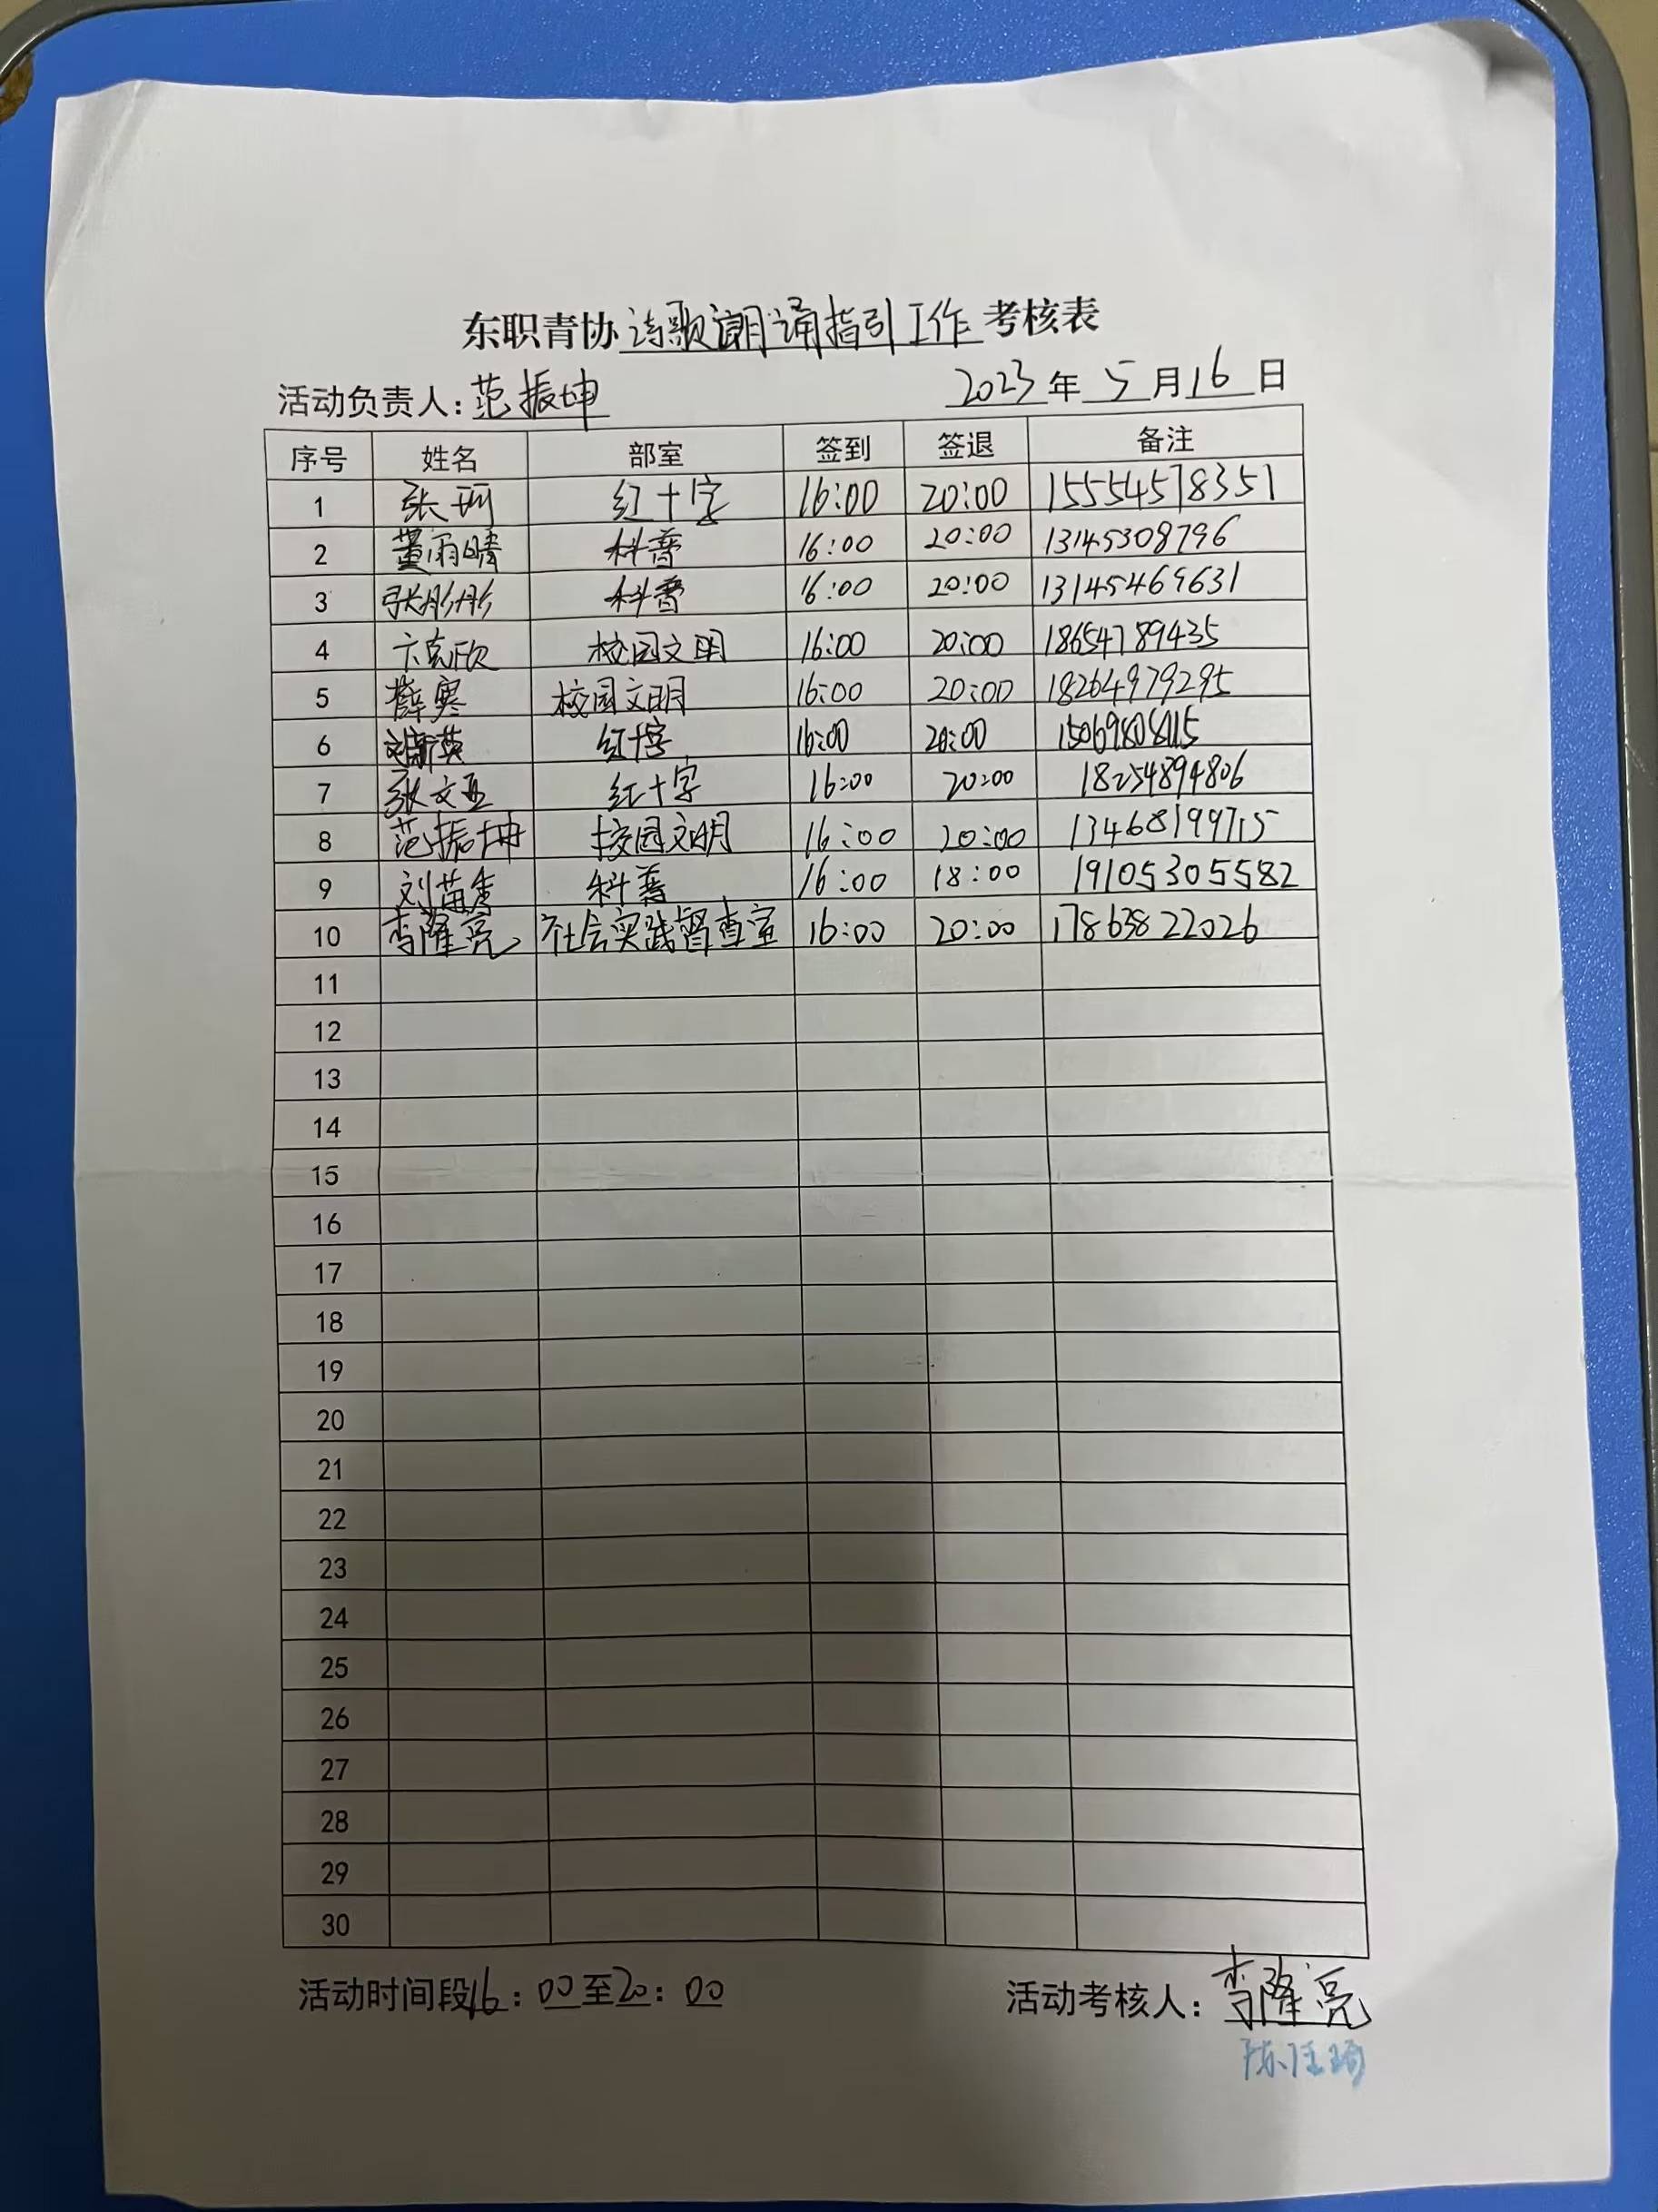 东职青协诗歌朗诵指引工作考核表
活动负责人：范振坤 2023年5月16日
序号 姓名 部室 签到 签退 备注
1 张珂 红十字 16:00 20:00 15554578351
2 董雨晴 科普 16:00 20:00 13145308796
3 张彤彤 科普 16:00 20:00 13145469631
4 卞克欣 校园文明 16:00 20:00 18654789435
5 薛寒 校园文明 16:00 20:00 18264979295
6 红十字 16:00 20:00
7 张文亚 红十字 16:00 20:00 18254894806
8 范振坤 校园文明 16:00 20:00 13468199715
9 刘苗秀 科普 16:00 18:00 19105305582
10 李隆亮 社会实践督查室 16:00 20:00 17863822026
11
12
13
14
15
16
17
18
19
20
21
22
23
24
25
26
27
28
29
30
活动时间段16：00至20：00 活动考核人：李隆亮